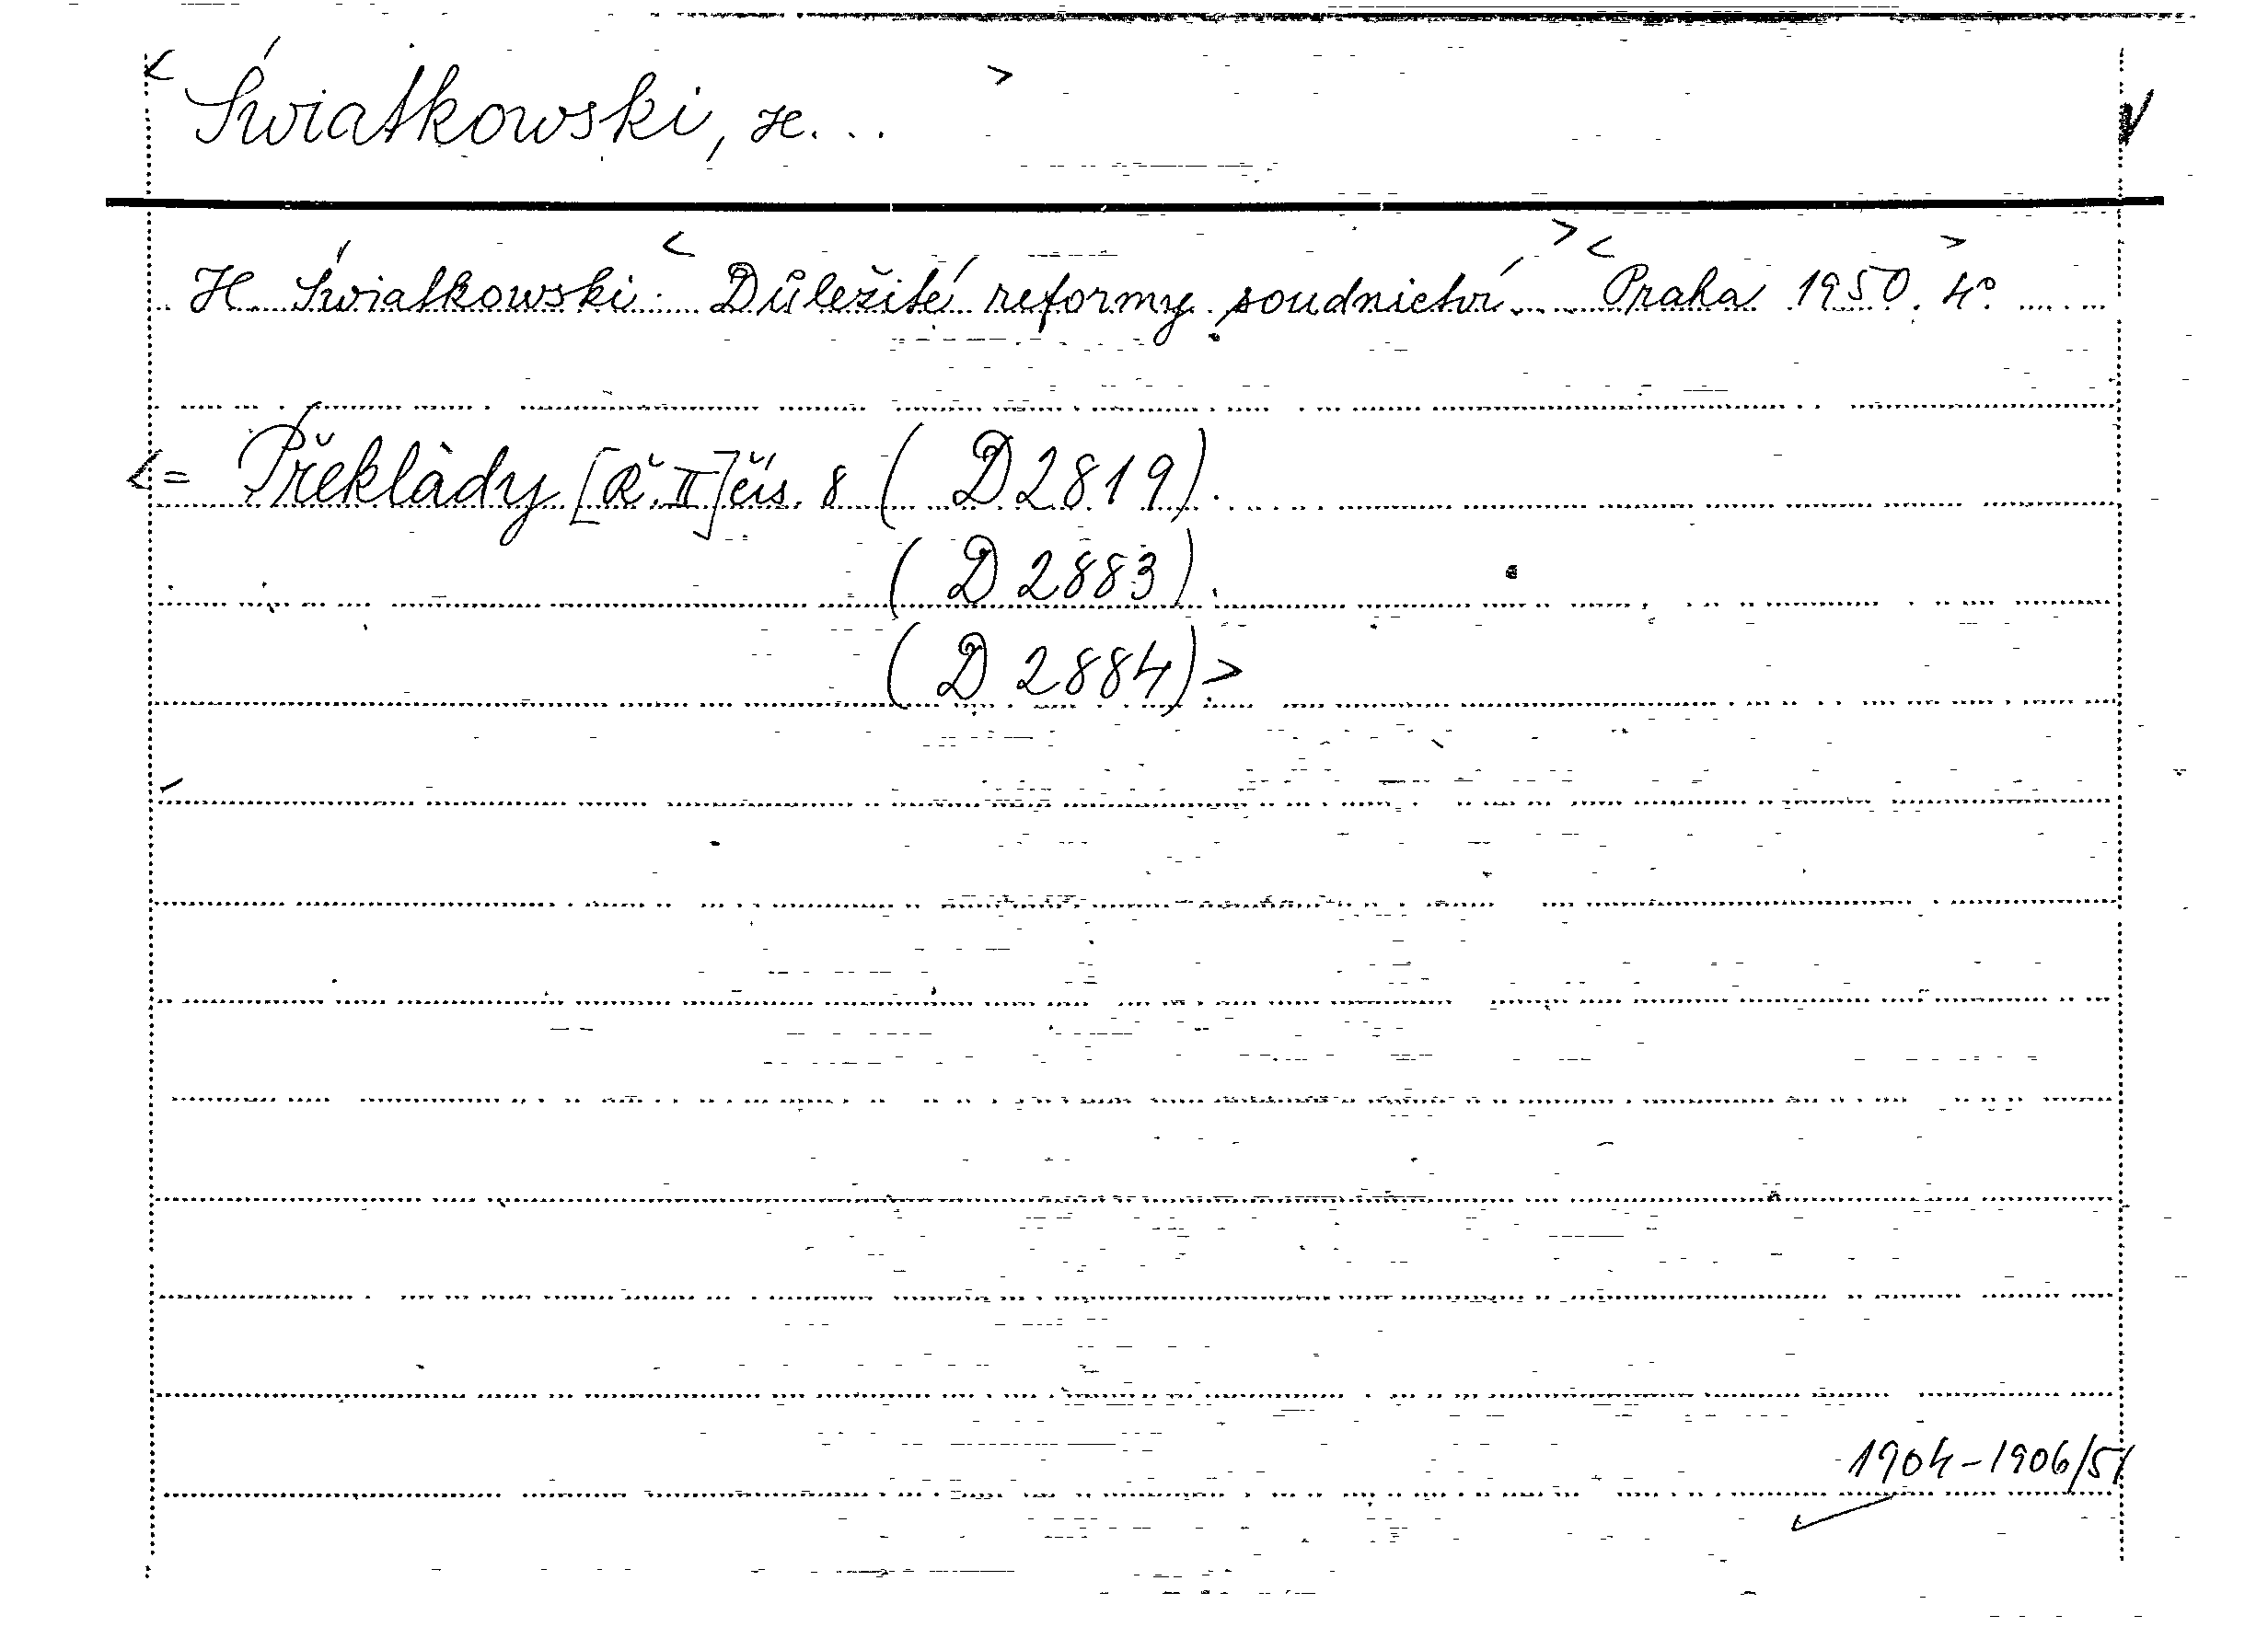 < Światkowski, H... >
H. Światkowski: < Důležité reformy soudnictví > < Praha 1950. > 4°
<= Překlady [Ř. II] čís. 8 ( D 2819).
( D 2883).
( D 2884) >
1904-1906/51